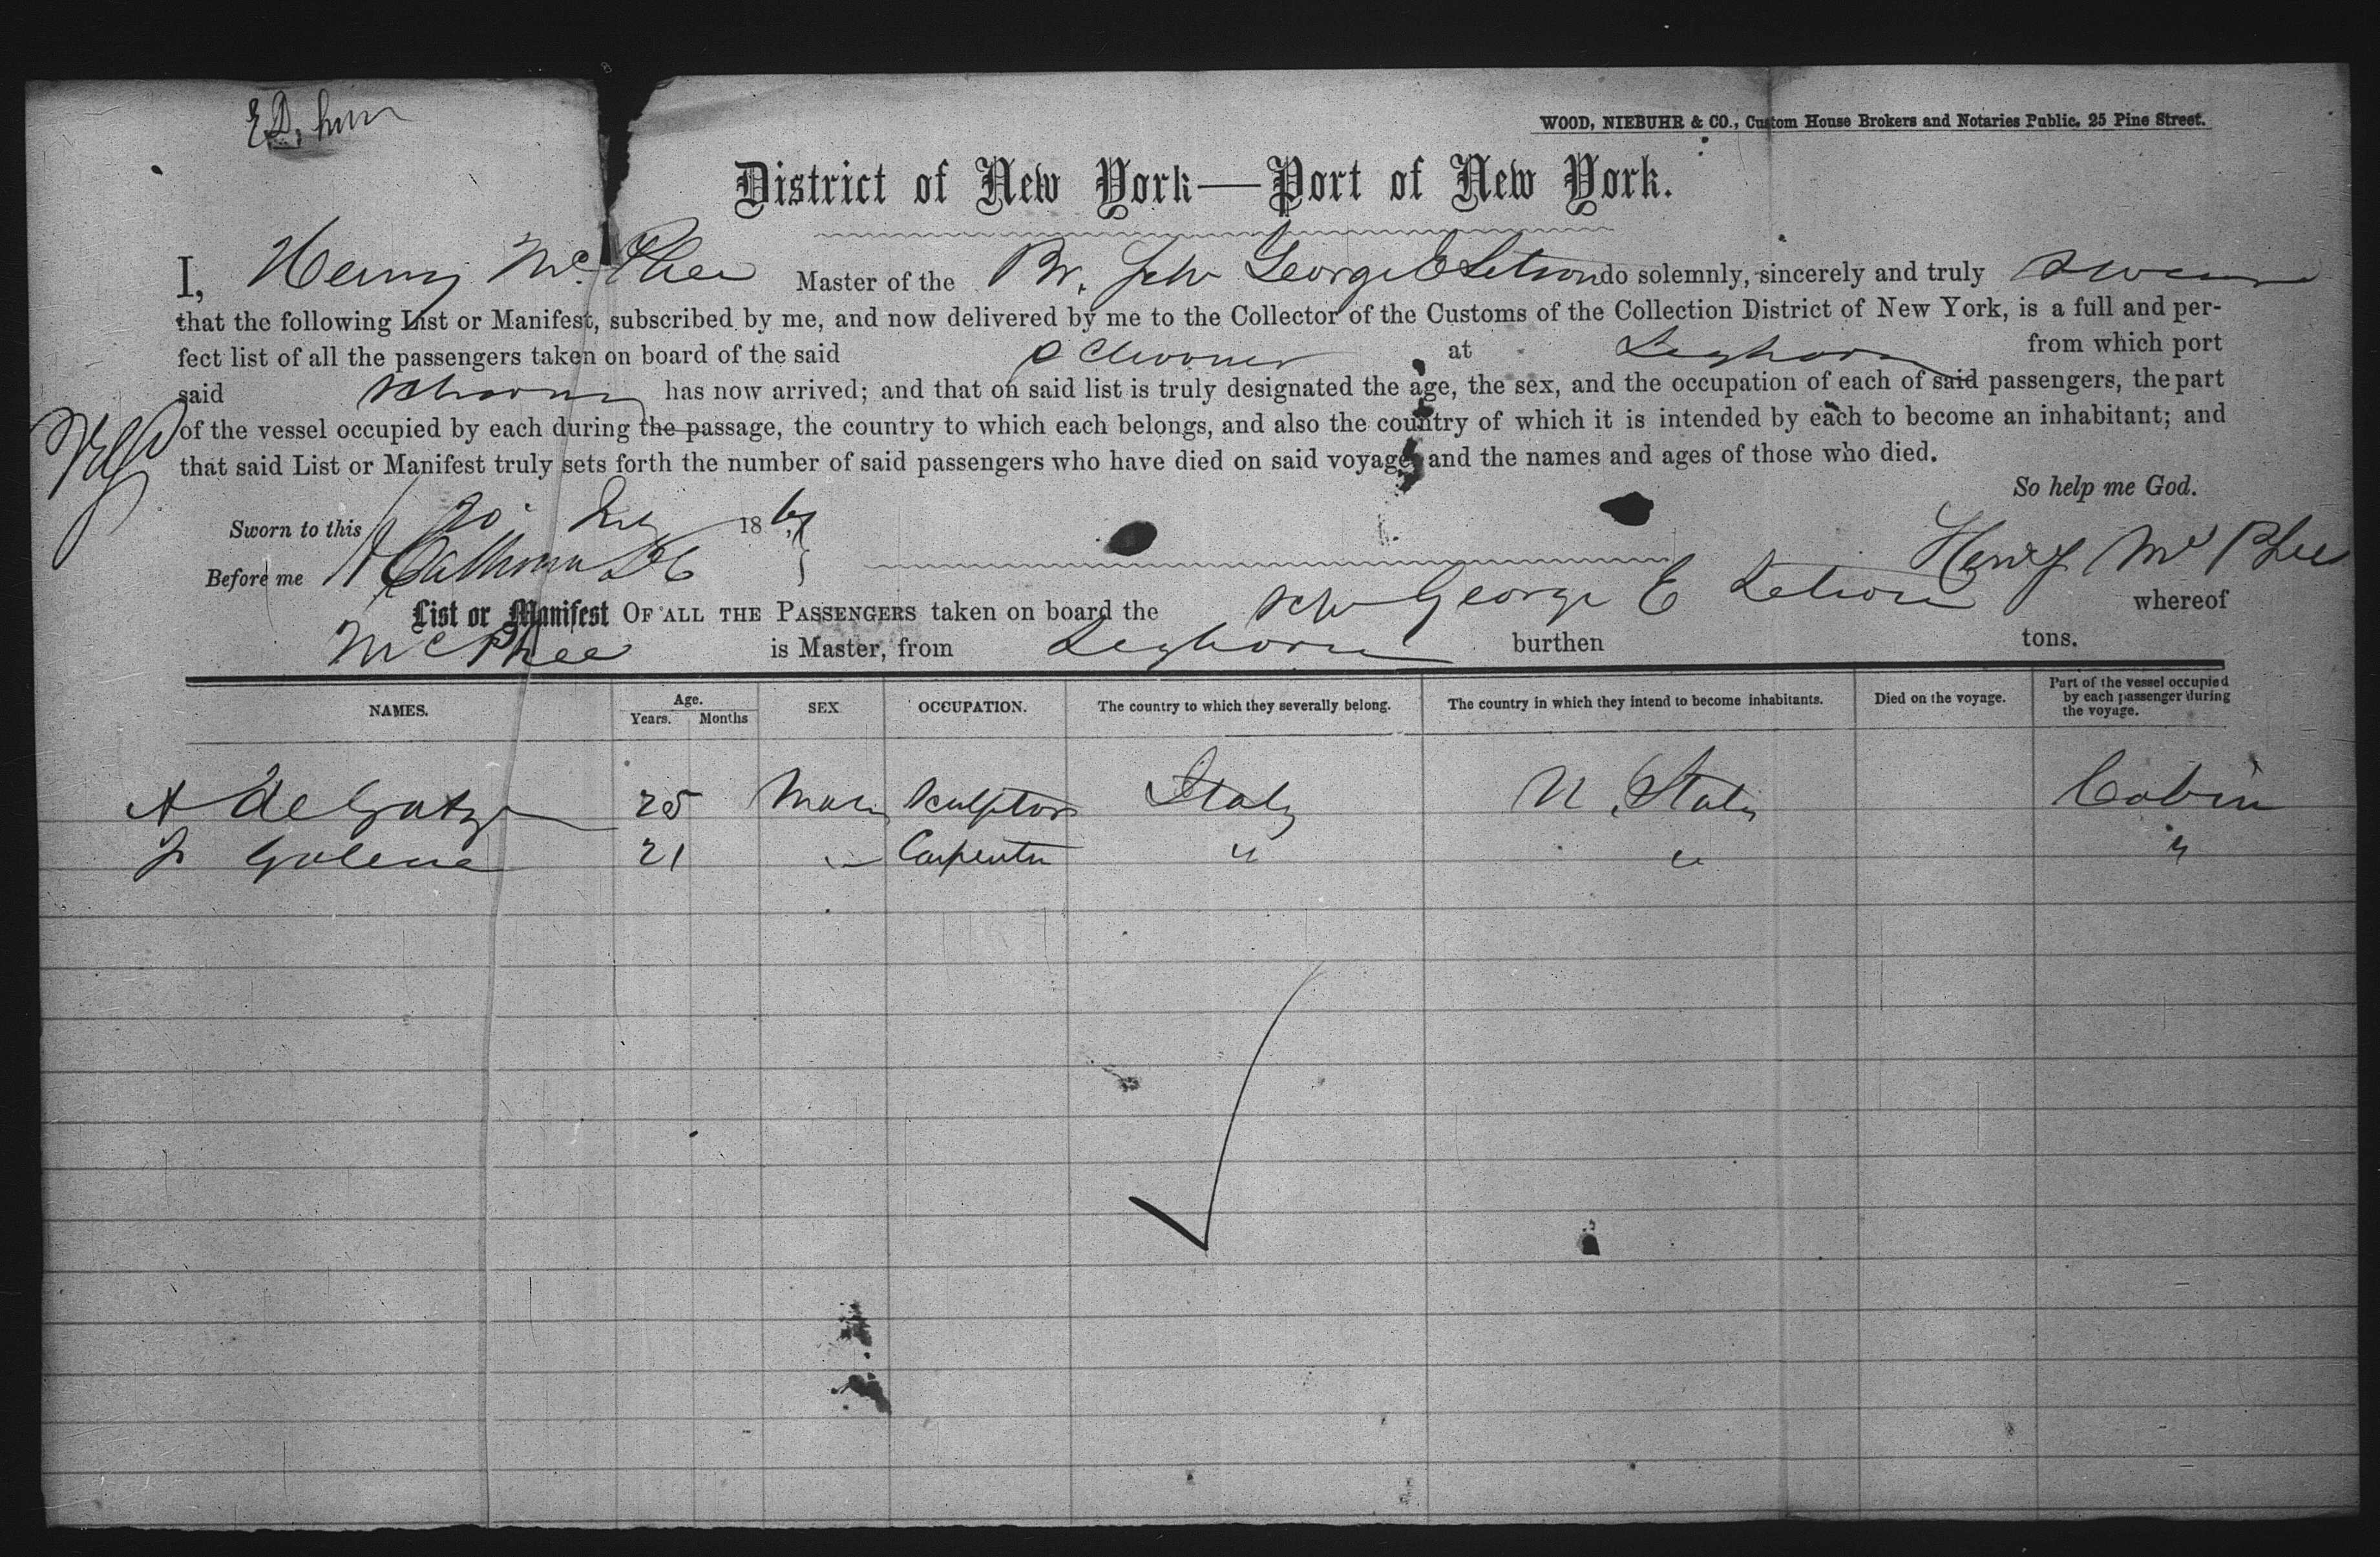 WOOD, NIEBUHR & CO., Custom House Brokers and Notaries Public, 25 Pine Street.
District of New York—Port of New York.
I, Henry McPhee Master of the Br. Schr George E do solemnly, sincerely and truly swear
that the following List or Manifest, subscribed by me, and now delivered by me to the Collector of the Customs of the Collection District of New York, is a full and per-
fect list of all the passengers taken on board of the said Schooner at Leghorn from which port
said Schooner has now arrived; and that on said list is truly designated the age, the sex, and the occupation of each of said passengers, the part
of the vessel occupied by each during the passage, the country to which each belongs, and also the country of which it is intended by each to become an inhabitant; and
that said List or Manifest truly sets forth the number of said passengers who have died on said voyage, and the names and ages of those who died.
So help me God.
Sworn to this 20 18
Before me Calhoun
Henry McPhee
List or Manifest OF ALL THE PASSENGERS taken on board the Schr George E whereof
McPhee is Master, from Leghorn burthen tons.
NAMES. Age. Years. Months SEX OCCUPATION. The country to which they severally belong. The country in which they intend to become inhabitants. Died on the voyage. Part of the vessel occupied by each passenger during the voyage.
A 25 Male Sculptor Italy U. States Cabin
21 " Carpenter " " "